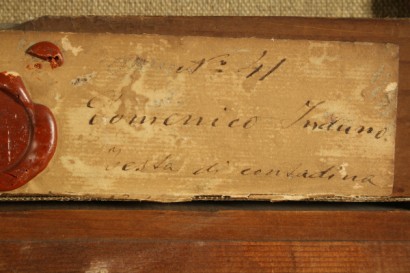 N° 41
Domenico Induno.
Testa di contadina